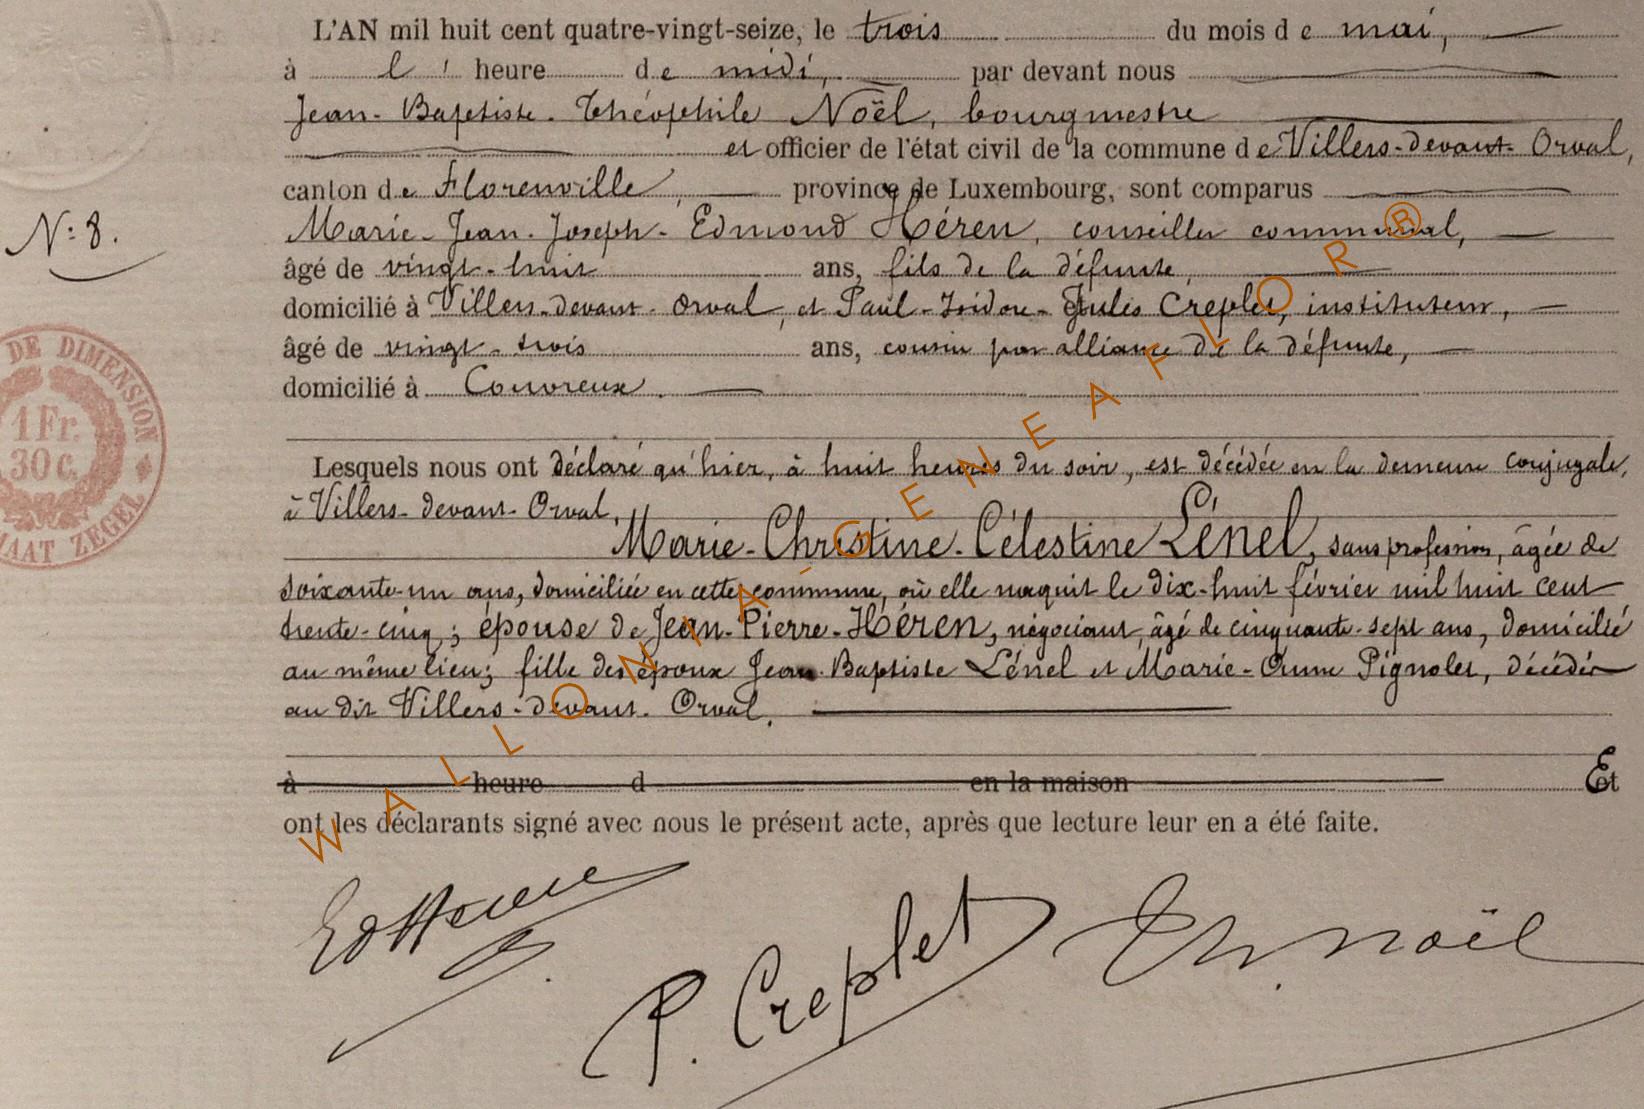 L'AN mil huit cent quatre-vingt-seize, le trois du mois de mai,
à l' heure de midi, par devant nous
Jean-Baptiste-Théophile Noël, bourgmestre
et officier de l'état civil de la commune de Villers-devant-Orval,
canton de Florenville, province de Luxembourg, sont comparus
N: 8.
Marie-Jean-Joseph-Edmond Héren, conseiller communal,
âgé de vingt-huit ans, fils de la défunte,
domicilié à Villers-devant-Orval, et Paul-Isidore-Jules Créplet, instituteur,
âgé de vingt-trois ans, cousin par alliance de la défunte,
domicilié à Couvreux.
DE DIMENSION
1 Fr.
30 c.
ZEGEL
Lesquels nous ont déclaré qu'hier, à huit heures du soir, est décédée en la demeure conjugale,
à Villers-devant-Orval,
Marie-Christine-Célestine Lénel, sans profession, âgée de
soixante-un ans, domiciliée en cette commune, où elle naquit le dix-huit février mil huit cent
trente-cinq; épouse de Jean-Pierre-Héren, négociant, âgé de cinquante-sept ans, domicilié
au même lieu; fille des époux Jean-Baptiste Lénel et Marie-Anne Pignolet, décédés
au dit Villers-devant-Orval.
à heure d en la maison Et
ont les déclarants signé avec nous le présent acte, après que lecture leur en a été faite.
Ed Héren
P. Creplet
Th. Noël
WALLONIA-GENEAFLOR®